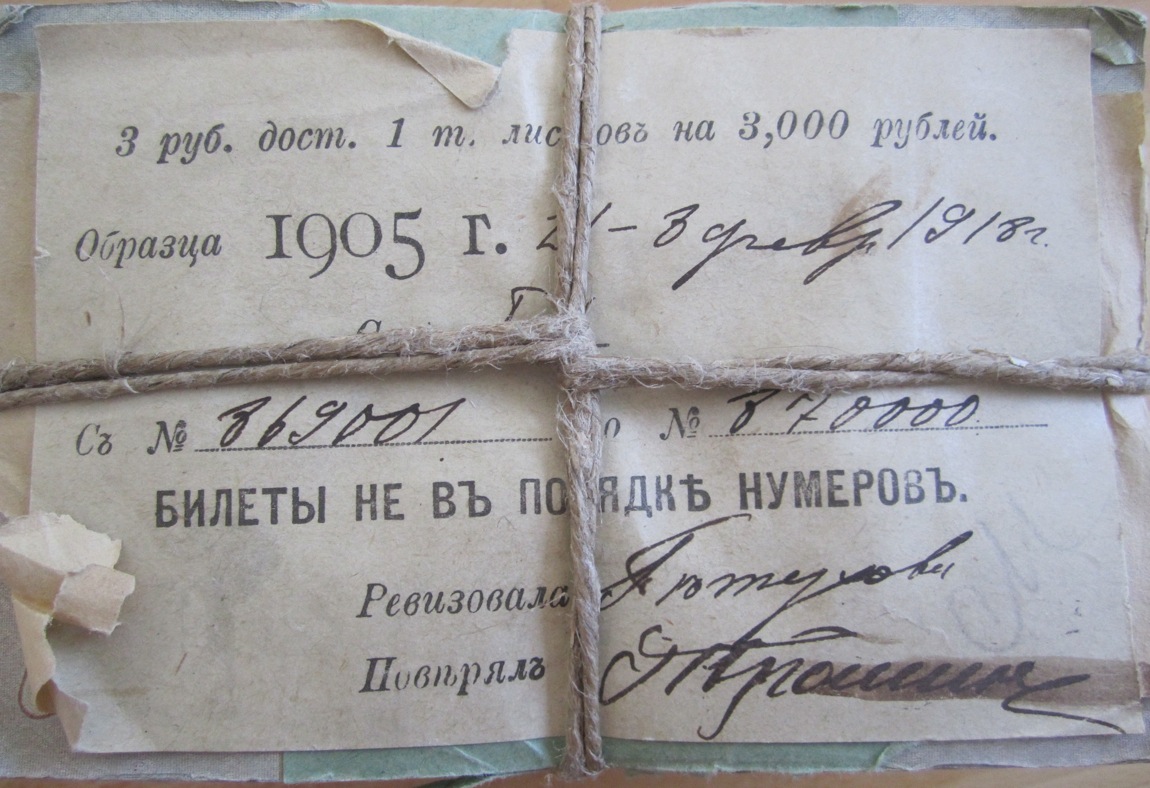 3 руб. дост. 1 т. листовъ на 3,000 рублей.
Образца 1905 г. 21 – 3 февр 1918 г.
Съ № 369001 по № 370000
БИЛЕТЫ НЕ ВЪ ПОРЯДКѢ НУМЕРОВЪ.
Ревизовала
Повѣрялъ